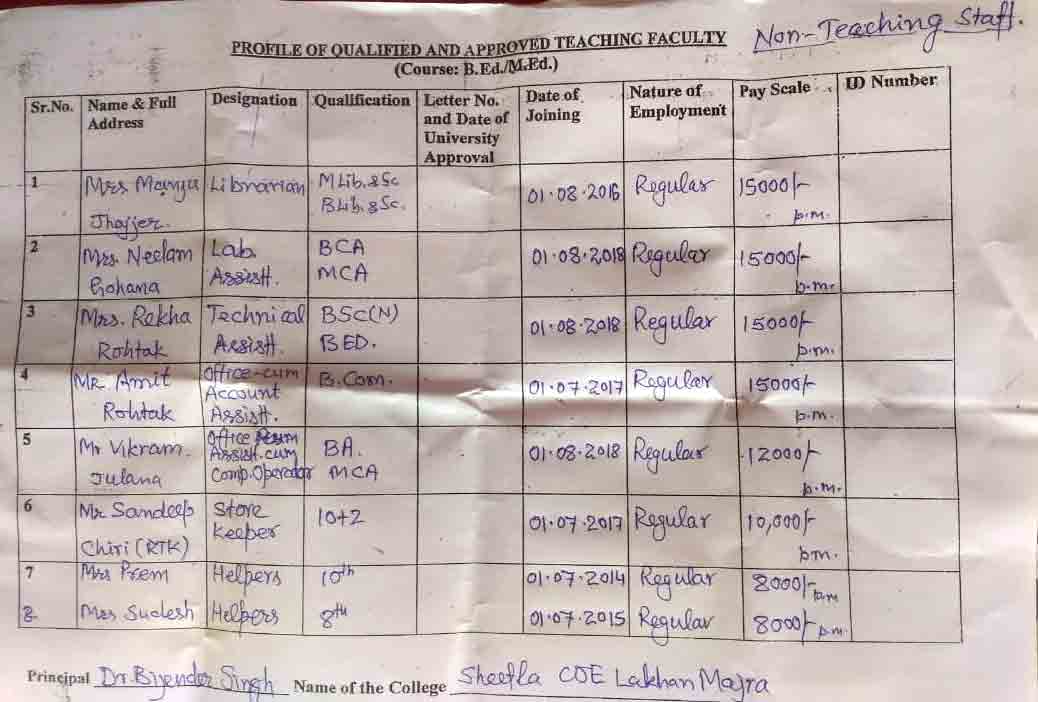 Non-Teaching Staff.
PROFILE OF QUALIFIED AND APPROVED TEACHING FACULTY
(Course: B.Ed./M.Ed.)
Sr.No. Name & Full Address Designation Qualification Letter No. and Date of University Approval Date of Joining Nature of Employment Pay Scale ID Number
1 Mrs Manju Jhajjer. Librarian M Lib.&Sc B.Lib.&Sc. 01.08.2016 Regular 15000/- p.m.
2 Mrs. Neelam Gohana Lab. Assistt. BCA MCA 01.08.2018 Regular 15000/- p.m.
3 Mrs. Rekha Rohtak Technical Assistt. BSC(N) BED. 01.08.2018 Regular 15000/- p.m.
4 Mr. Amit Rohtak Office-cum Account Assistt. B.Com. 01.07.2017 Regular 15000/- p.m.
5 Mr Vikram. Julana Office Assistt. cum Comp. Operator BA. MCA 01.08.2018 Regular 12000/- p.m.
6 Mr Sandeep Chiri (RTK) Store Keeper 10+2 01.07.2017 Regular 10,000/- pm.
7 Mrs Prem Helpers 10th 01.07.2014 Regular 8000/- p.m
8 Mrs Sudesh Helpers 8th 01.07.2015 Regular 8000/- p.m
Principal Dr. Bijender Singh Name of the College Sheetla COE Lakhan Majra